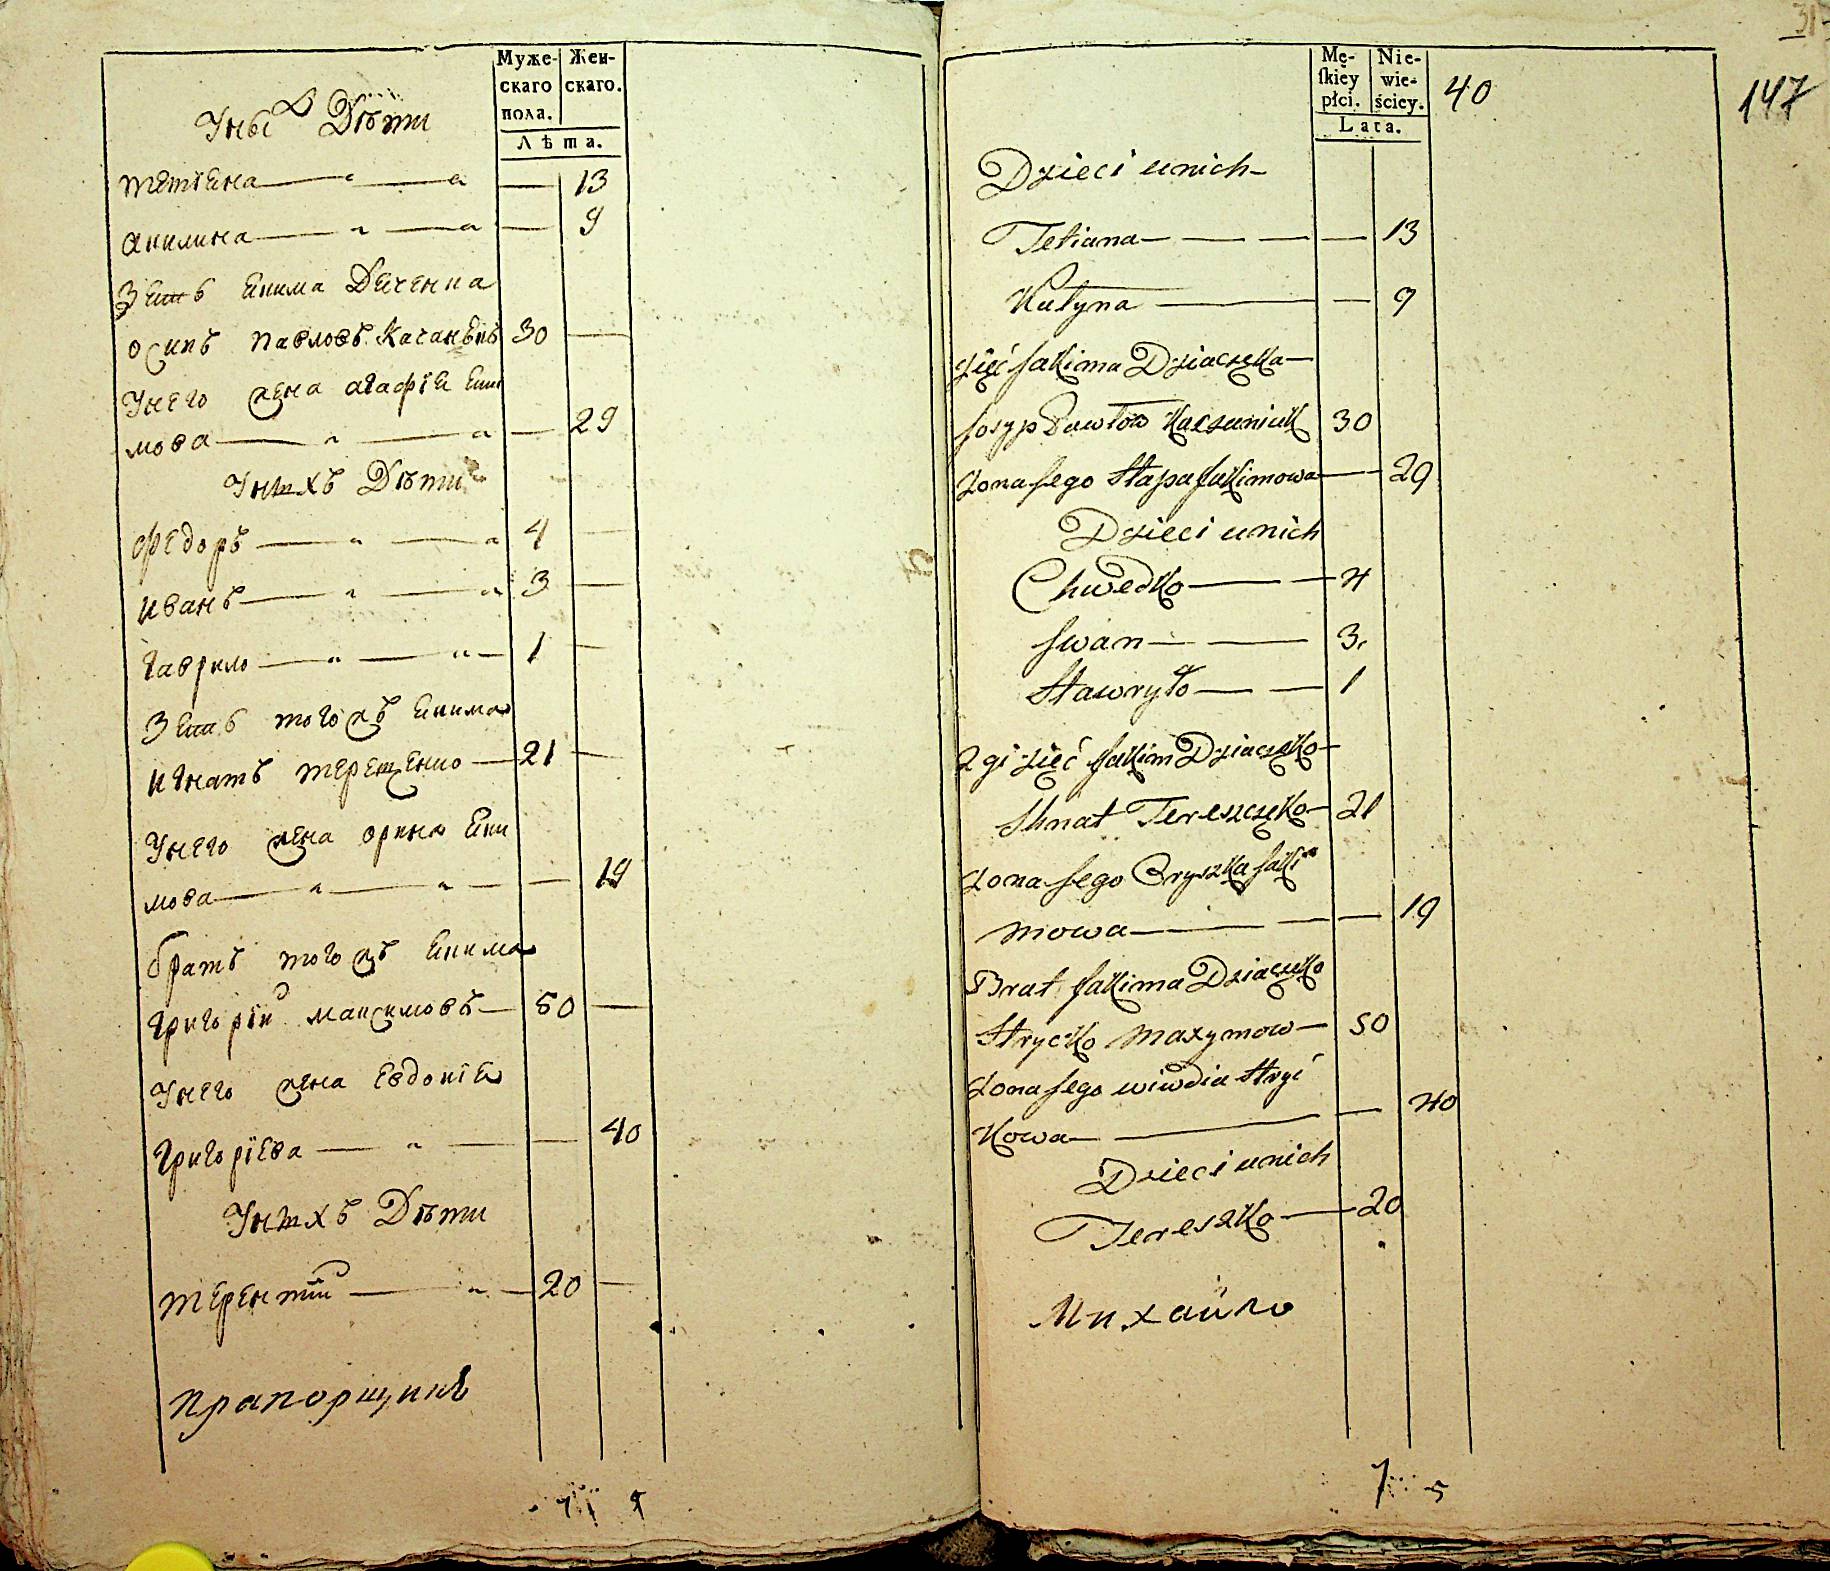 Муже-
скаго
пола.
Жен-
скаго.
Лѣта.
Уныхъ Дѣти
тетіена 13
акилина 9
Зеть Екима Деченка
осипъ павловъ Качанюкъ 30
Унего жена агафіе Еки
мова 29
Унихъ Дѣти
Федоръ 4
иванъ 3
гаврило 1
Зеть тогожъ Екима
игнатъ терещенко 21
Унего жена орина Еки
мова 19
братъ тогожъ Екима
григорій максимовъ 50
Унего жена Евдокіе
григоріева 40
Унихъ Дѣти
терентій 20
прапорщикъ
Mę-
skiey
płci.
Nie-
wie-
ściey.
Lata.
40
147
Dzieci unich
Tetiana 13
Kulyna 9
zięć Jakima Dziaczka
Josyp Pawłow Kaczaniuk 30
Zona Jego Hapa Jakimowa 29
Dzieci unich
Chwedko 4
Jwan 3
Hawryło 1
2gi zięć Jakim Dziaczko
Ihnat Tereszczko 21
Zona Jego Oryszka Jaki
mowa 19
Brat Jakima Dziaczko
Hrycko Maxymow 50
Zona Jego wiwdia Hryć
kowa 40
Dzieci unich
Tereszko 20
Михайло
7 5